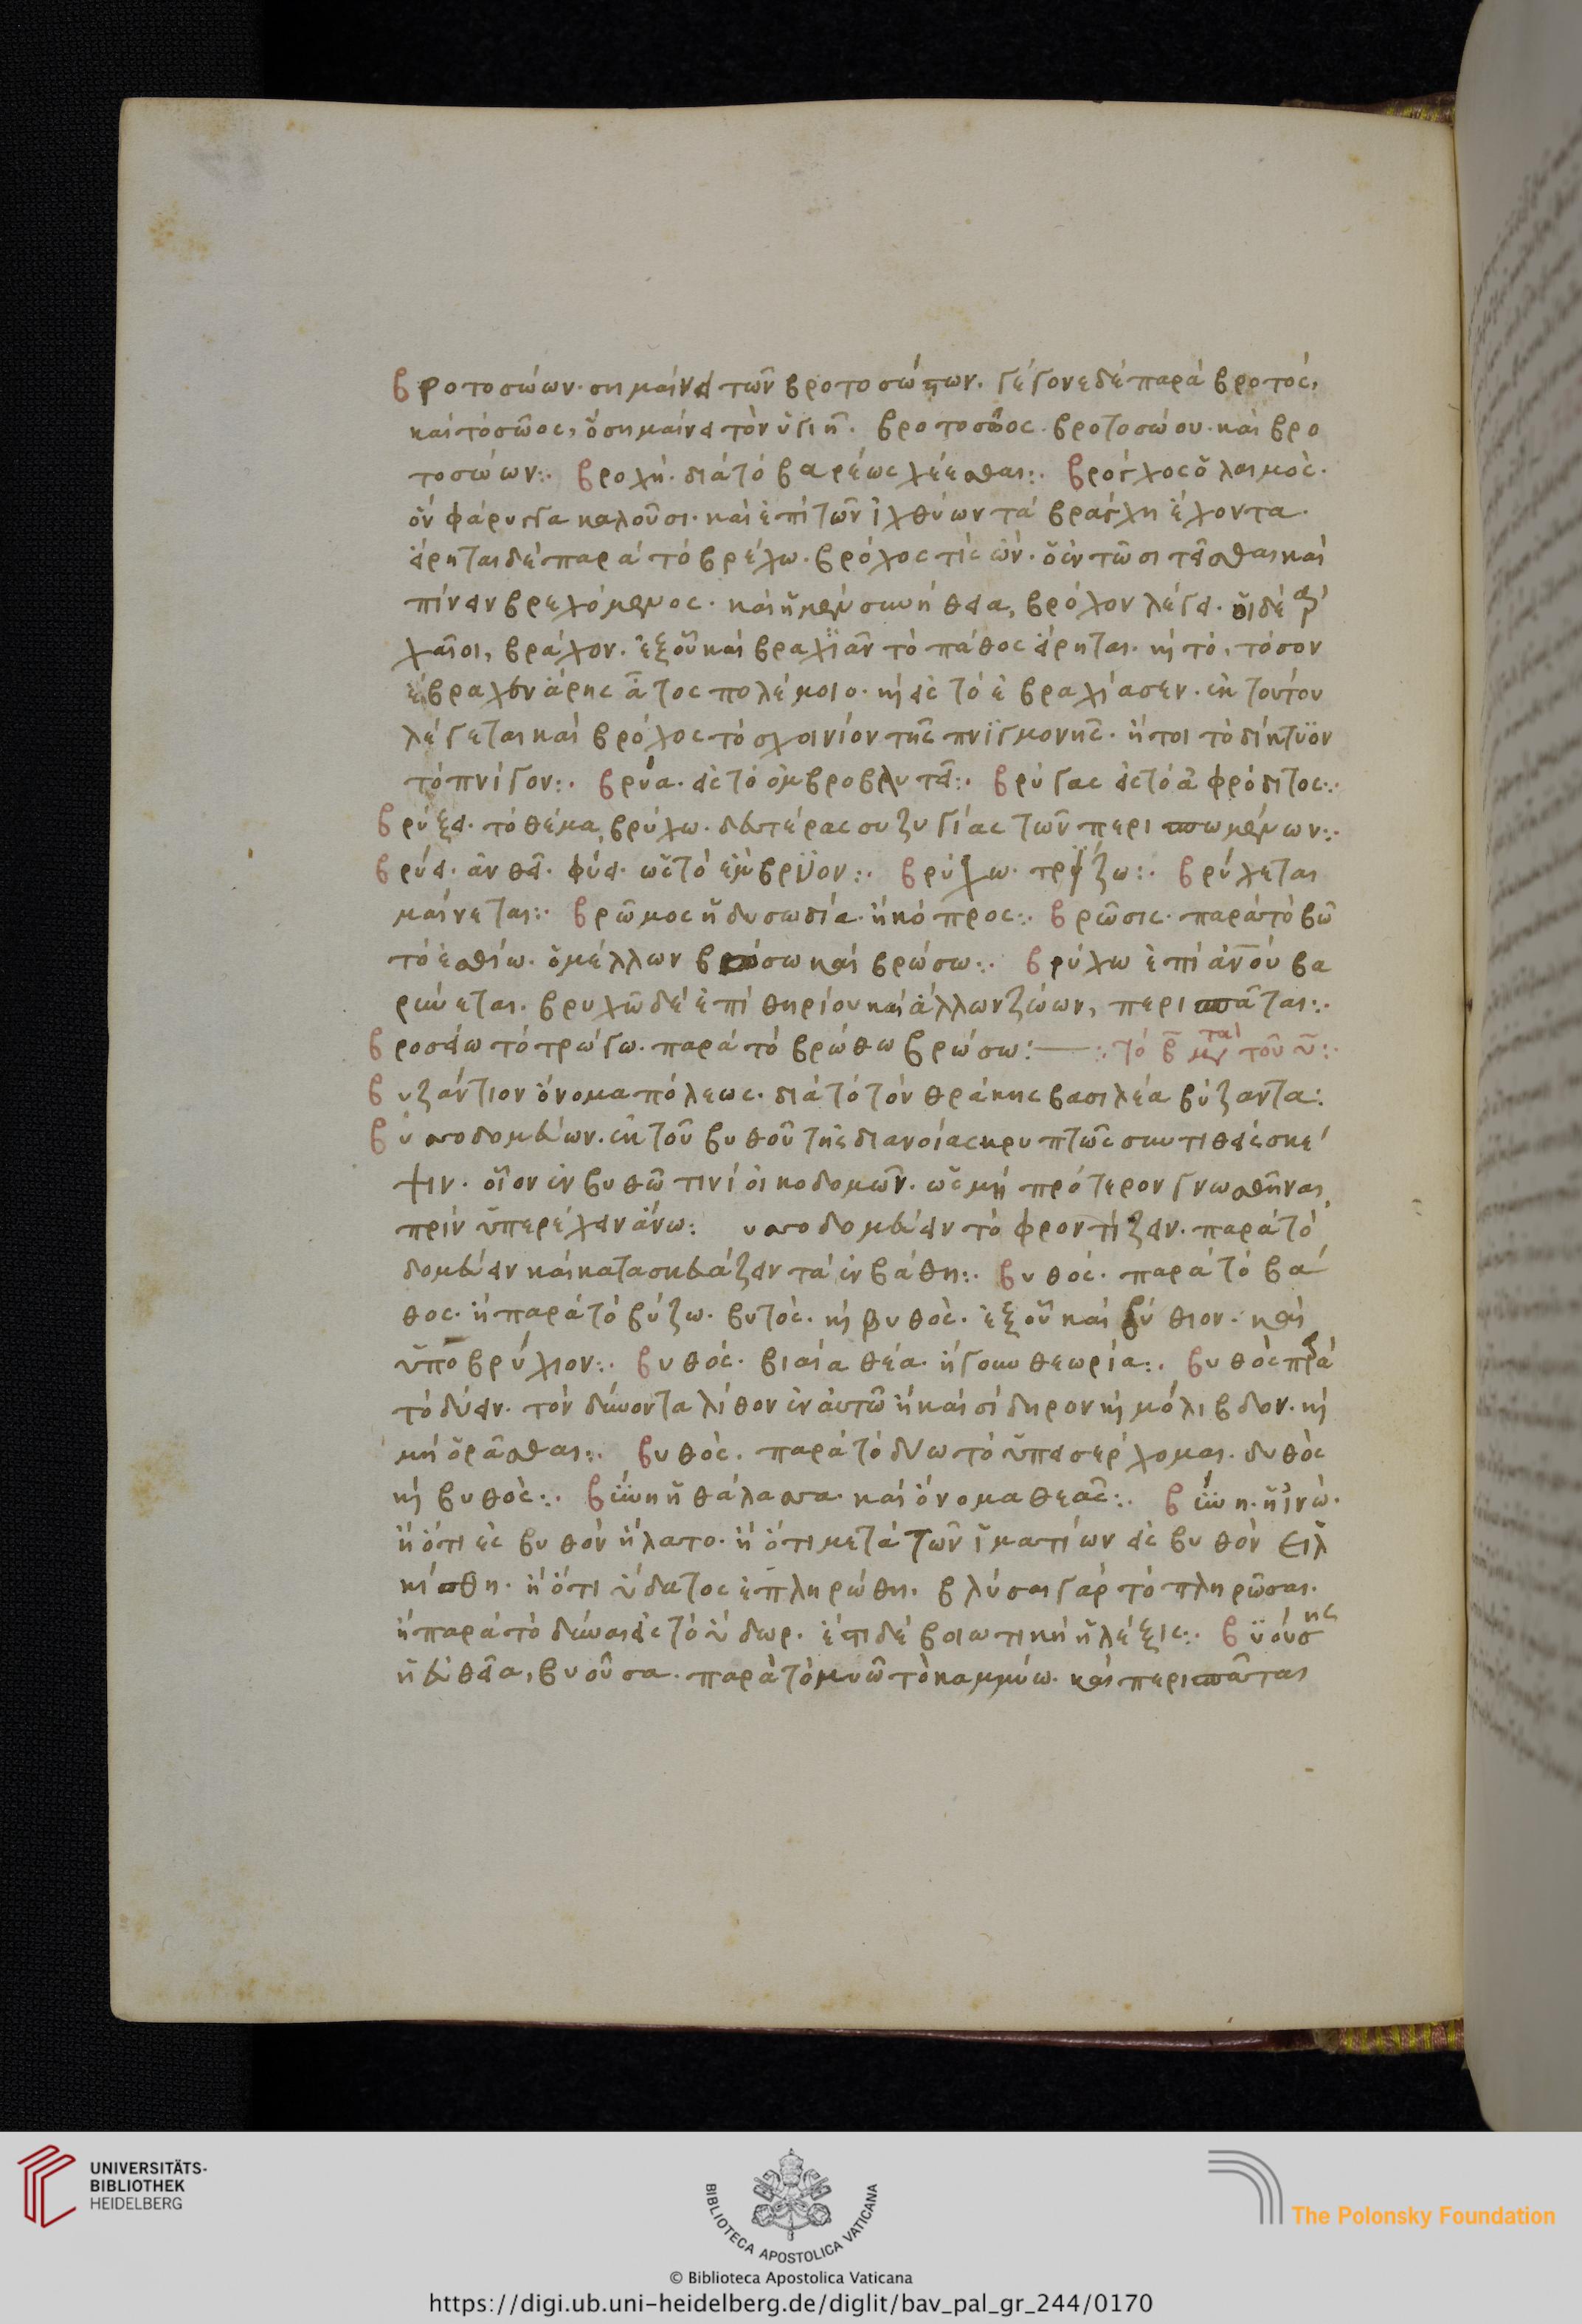 βροτοσώων· σημαίνει τῶν βροτοσώπων. γέγονε δὲ παρὰ βροτός,
καὶ τὸ σῶος, ὃ σημαίνει τὸν ὑγιῆ. βροτοσῶος· βροτοσώου· καὶ βρο
τοσώων:· βροχή· διὰ τὸ βαρέως χέεσθαι:· βρόγχος ὁ λαιμός·
ὃν φάρυγγα καλοῦσι· καὶ ἐπὶ τῶν ἰχθύων τὰ βράγχη ἔχοντα·
εἴρηται δὲ παρὰ τὸ βρέχω. βρόχος τίς ὢν· ὁ ἐν τῶ σιτεῖσθαι καὶ
πίνειν βρεχόμενος· καὶ ἡ μὲν συνήθεια, βρόχον λέγει· οἱ δὲ ἀρ
χαῖοι, βράχον. ἐξ οὗ καὶ βραχϊᾶν τὸ πάθος εἴρηται. κὴ τό, τόσον
ἔβραχεν ἄρης ἆτος πολέμοιο. κὴ εἰς τὸ ἐβραχίασεν. ἐκ τούτου
λέγεται καὶ βρόχος τὸ σχοινίον τῆς πνϊγμονῆς· ἤτοι τὸ δίκτϋον
τὸ πνίγον:· βρύα· εἰς τὸ ὀμβροβλυτεῖ:· βρύγας εἰς τὸ ἀφρόδιτος:·
βρύξει· τὸ θέμα, βρύχω. δευτέρας συζυγίας τῶν περισπωμένων:·
βρύει· ἀνθεῖ· φύει· ὡς τὸ ἔμβρϋον:· βρύχω· τρίζω:· βρύχεται
μαίνεται:· βρῶμος ἡ δυσωδία· ἢ κόπρος:· βρῶσις· παρὰ τὸ βῶ
τὸ ἐσθίω· ὁ μέλλων βώσω καὶ βρώσω:· βρύχω ἐπὶ ἀνοῦ βα
ρύνεται. βρυχῶ δὲ ἐπὶ θηρίου καὶ ἄλλων ζώων, περισπᾶται:·
βροσείω τὸ τρώγω. παρὰ τὸ βρώθω βρώσω: — :· τὸ β μετὰ τοῦ υ:·
βυζάντιον ὄνομα πόλεως· διὰ τὸ τὸν θράκης βασιλέα βύζαντα:
βυσσοδομεύων. ἐκ τοῦ βυθοῦ τῆς διανοίας κρυπτῶς συντιθεὶς σκέ
ψιν· οἷον ἐν βυθῶ τινὶ οἰκοδομῶν. ὡς μὴ πρότερον γνωσθῆναι
πρὶν ὑπερέχειν ἄνω: υσσοδομεύειν τὸ φροντίζειν. παρὰ τὸ
δομεύειν καὶ κατασκευάζειν τὰ ἐν βάθη:· βυθός· παρὰ τὸ βά
θος· ἢ παρὰ τὸ βύζω. βυτός· κὴ βυθός· ἐξ οὗ καὶ βύθιον· καὶ
ὑποβρύχιον:· βυθός· βιαία θέα· ἤγουν θεωρία:· βυθὸς παρὰ
τὸ δύειν· τὸν δύνοντα λίθον ἐν αὐτῶ ἢ καὶ σίδηρον κὴ μόλιβδον· κὴ
μὴ ὁρᾶσθαι:· βυθός. παρὰ τὸ δύω τὸ ὑπεισερχομαι. δυθὸς
κὴ βυθός:· βύνη ἡ θάλασσα· καὶ ὄνομα θεᾶς:· βύνη· ἡ ἰνώ·
ἢ ὅτι εἰς βυθὸν ἥλατο· ἢ ὅτι μετὰ τῶν ἱματίων εἰς βυθὸν εἱλ
κύσθη· ἢ ὅτι ὕδατος ἐπληρώθη. βλύσαι γὰρ τὸ πληρῶσαι.
ἢ παρὰ τὸ δύναι εἰς τὸ ὕδωρ. ἔστι δὲ βοιωτικὴ ἡ λέξις:· βϋούσης
ἡ εὐθεῖα, βυοῦσα· παρὰ τὸ μυῶ τὸ καμμύω. καὶ περισπᾶται
UNIVERSITÄTS-
BIBLIOTHEK
HEIDELBERG
BIBLIOTECA APOSTOLICA VATICANA
The Polonsky Foundation
© Biblioteca Apostolica Vaticana
https://digi.ub.uni-heidelberg.de/diglit/bav_pal_gr_244/0170